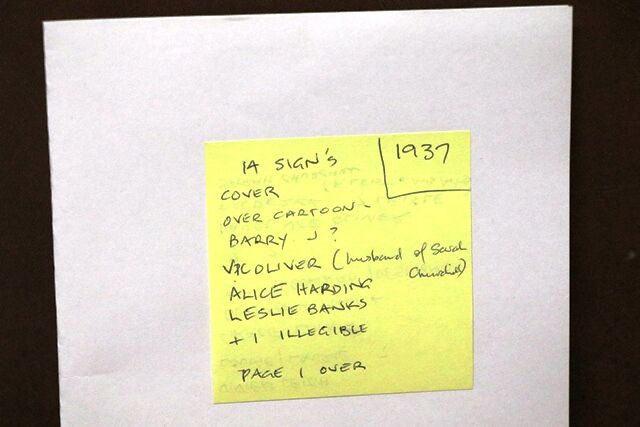 14 SIGN'S
1937
COVER
OVER CARTOON -
BARRY J ?
VIC OLIVER (husband of Sarah
Churchill)
ALICE HARDING
LESLIE BANKS
+ 1 ILLEGIBLE
PAGE 1 OVER